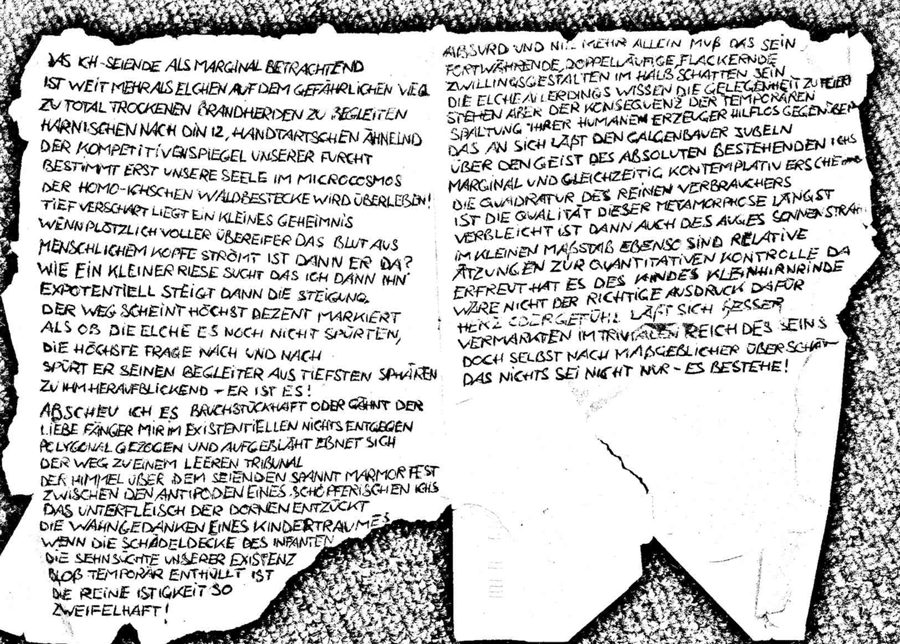 DAS ICH-SEIENDE ALS MARGINAL BETRACHTEND
IST WEIT MEHR ALS ELCHEN AUF DEM GEFÄHRLICHEN WEG
ZU TOTAL TROCKENEN BRANDHERDEN ZU BEGLEITEN
HARNISCHEN NACH DIN 12, HANDTARTSCHEN ÄHNELND
DER KOMPETITIVENSPIEGEL UNSERER FURCHT
BESTIMMT ERST UNSERE SEELE IM MICROCOSMOS
DER HOMO-ICHSCHEN WALDBESTECKE WIRD ÜBERLEBEN!
TIEF VERSCHART LIEGT EIN KLEINES GEHEIMNIS
WENN PLÖTZLICH VOLLER ÜBEREIFER DAS BLUT AUS
MENSCHLICHEM KOPFE STRÖMT IST DANN ER DA?
WIE EIN KLEINER RIESE SUCHT DAS ICH DANN IHN
EXPOTENTIELL STEIGT DANN DIE STEIGUNG.
DER WEG SCHEINT HÖCHST DEZENT MARKIERT
ALS OB DIE ELCHE ES NOCH NICHT SPÜRTEN,
DIE HÖCHSTE FRAGE NACH UND NACH
SPÜRT ER SEINEN BEGLEITER AUS TIEFSTEN SPHÄREN
ZU IHM HERAUFBLICKEND - ER IST ES!
ABSCHEU ICH ES BRUCHSTÜCKHAFT ODER GÄHNT DER
LIEBE FÄNGER MIR IM EXISTENTIELLEN NICHTS ENTGEGEN
POLYGONAL GEZOGEN UND AUFGEBLÄHT EBNET SICH
DER WEG ZU EINEM LEEREN TRIBUNAL
DER HIMMEL ÜBER DEM SEIENDEN SPANNT MARMORFEST
ZWISCHEN DEN ANTIPODEN EINES SCHÖPFERISCHEN ICHS
DAS UNTERFLEISCH DER DORNEN ENTZÜCKT
DIE WAHNGEDANKEN EINES KINDERTRAUMES
WENN DIE SCHÄDELDECKE DES INFANTEN
DIE SEHNSÜCHTE UNSERER EXISTENZ
BLOß TEMPORÄR ENTHÜLLT IST
DIE REINE ISTIGKEIT SO
ZWEIFELHAFT!
ABSURD UND NIE MEHR ALLEIN MUß DAS SEIN
FORTWÄHRENDE, DOPPELLÄUFIGE, FLACKERNDE
ZWILLINGSGESTALTEN IM HALBSCHATTEN SEIN
DIE ELCHE ALLERDINGS WISSEN DIE GELEGENHEIT ZU FEIERN
STEHEN ABER DER KONSEQUENZ DER TEMPORÄREN
SPALTUNG IHRER HUMANEN ERZEUGER HILFLOS GEGENÜBER
DAS AN SICH LÄßT DEN GALGENBAUER JUBELN
ÜBER DEN GEIST DES ABSOLUTEN BESTEHENDEN ICHS
MARGINAL UND GLEICHZEITIG KONTEMPLATIV
DIE QUADRATUR DES REINEN VERBRAUCHERS
IST DIE QUALITÄT DIESER METAMORPHOSE LÄNGST
VERBLEICHT IST DANN AUCH DES AUGES
IM KLEINEN MAßSTAB EBENSO SIND RELATIVE
ÄTZUNGEN ZUR QUANTITATIVEN KONTROLLE DA
ERFREUT HAT ES DES KINDES KLEINHIRNRINDE
WÄRE NICHT DER RICHTIGE AUSDRUCK DAFÜR
HERZ ODER GEFÜHL LÄßT SICH BESSER
VERMARKTEN IM TRIVIALEN REICH DES SEINS
DOCH SELBST NACH MAßGEBLICHER
DAS NICHTS SEI NICHT NUR - ES BESTEHE!